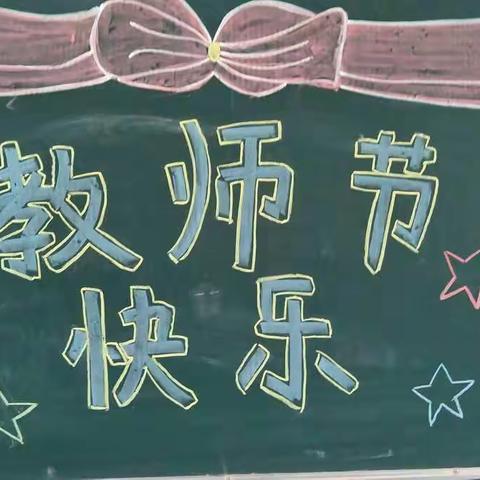 教师节
快乐